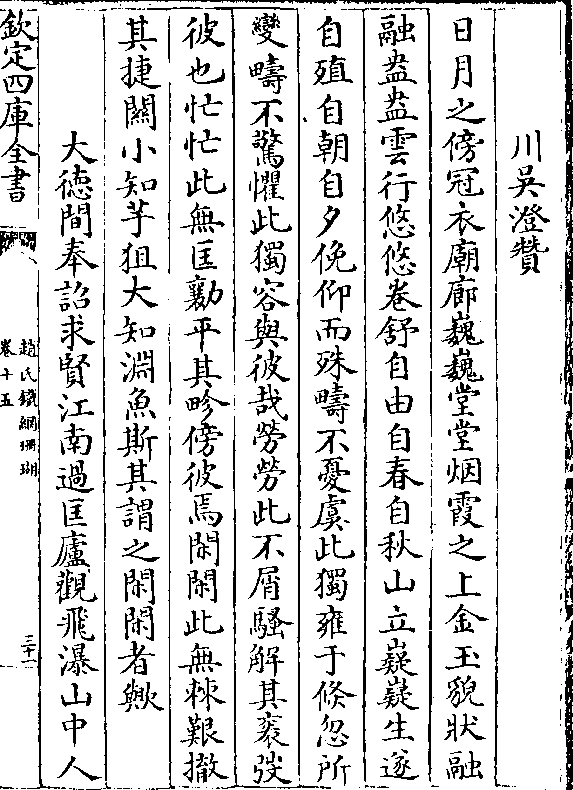 川吳澄贊
日月之傍冠衣廟廊巍巍堂堂烟霞之上金玉貌狀融
融盎盎雲行悠悠卷舒自由自春自秋山立嶷嶷生遂
自殖自朝自夕俛仰而殊疇不憂虞此獨雍于倐忽所
變疇不驚懼此獨容與彼哉勞勞此不屑騷解其袠弢
彼也忙忙此無匡勷平其畛傍彼焉閑閑此無棘艱撤
其捷關小知芋狙大知淵魚斯其謂之閑閑者歟
大德間奉詔求賢江南過匡廬觀飛瀑山中人
欽定四庫全書
趙氏鐵網珊瑚
卷十五
三十一